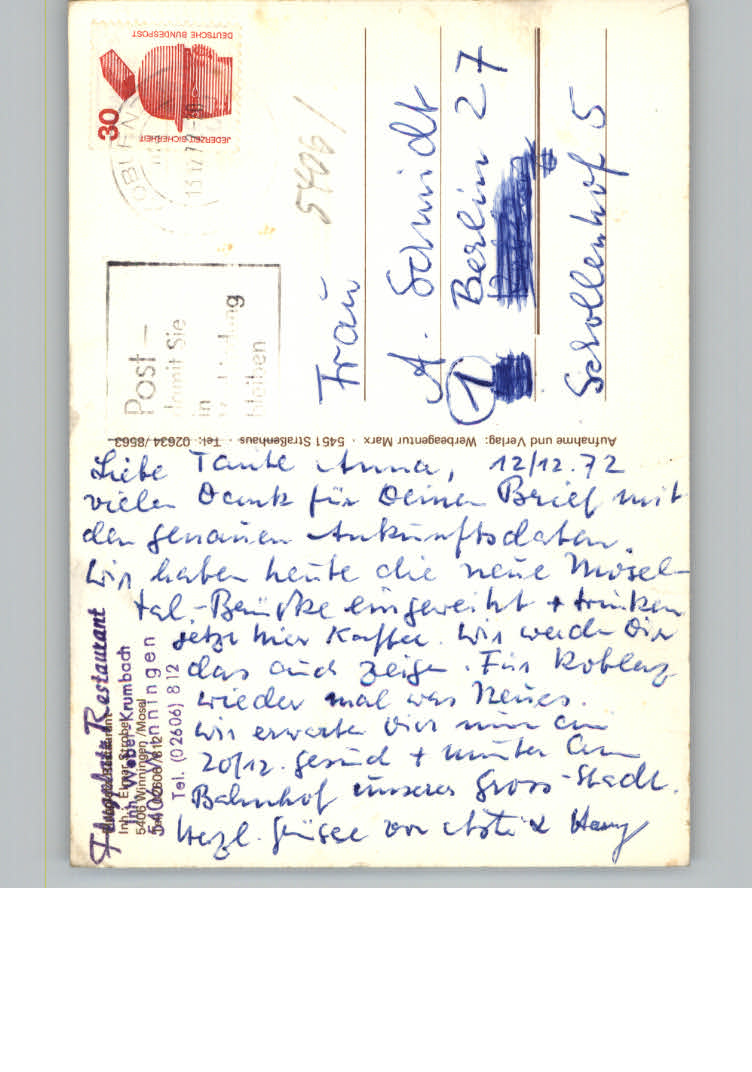 DEUTSCHE BUNDESPOST
30
JEDERZEIT SICHERHEIT
5406/
Post –
damit Sie
in
bleiben
Frau
A. Schmidt
1 Berlin 27
Schollenhof 5
Aufnahme und Verlag: Werbeagentur Marx · 5451 Straßenhaus · Tel: 02634/8563
Liebe Tante Anna, 12/12.72
vielen Dank für Deinen Brief mit
den genauen Ankunftsdaten.
Wir haben heute die neue Mosel-
tal-Brücke eingeweiht + trinken
jetzt hier Kaffee. Wir werden Dir
das auch zeigen. Für Koblenz
wieder mal was Neues.
Wir erwarten Dich nun am
20/12. gesund + munter am
Bahnhof unserer Gross-Stadt.
Herzl. Grüsse von &
Restaurant
Inh. Weber-Krumbach
Inh.: Elmar Strobel
5406 Winningen/Mosel
5406 Winningen
Tel. (02606) 812